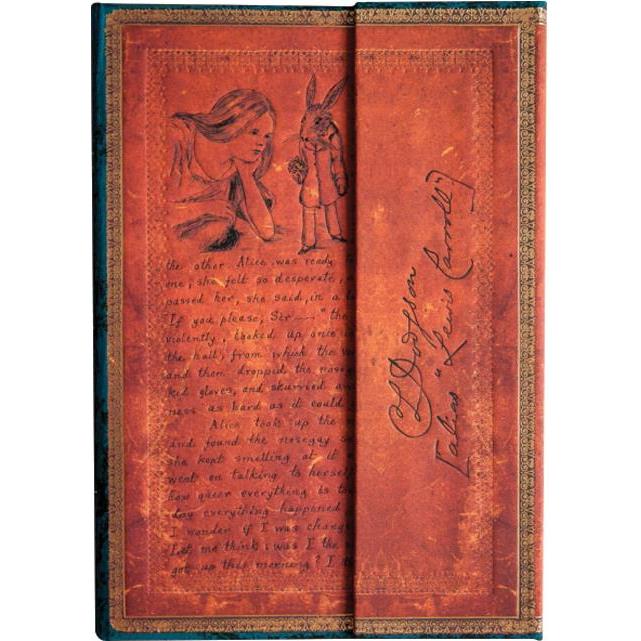 the other. Alice was ready
one; she felt so desperate,
passed her, she said, in a
If you please, Sir—" the
violently, looked up once
the hall, from which the
and then dropped the nose
kid gloves, and skurried aw
ness as hard as it could
Alice took up the
and found the nosegay so
she kept smelling at it
went on talking to herself
how queer everything is to
day everything happened
I wonder if I was change
Let me think: was I the
got up this morning? I
C L Dodgson
[alias "Lewis Carroll"]